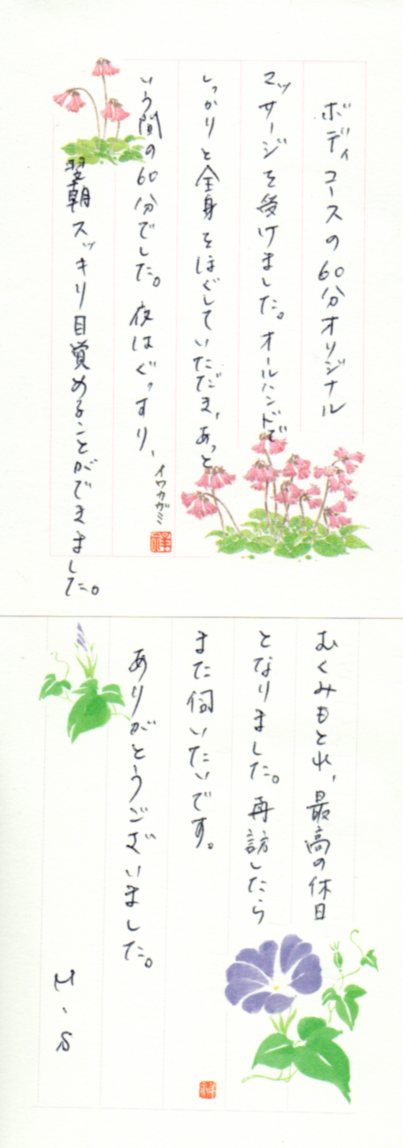 ボディコースの60分オリジナル
マッサージを受けました。オールハンドで
しっかりと全身をほぐしていただき、あっと
いう間の60分でした。夜はぐっすり、
翌朝スッキリ目覚めることができました。
イワカガミ
むくみもとれ、最高の休日
となりました。再訪したら
また伺いたいです。
ありがとうございました。
H・S